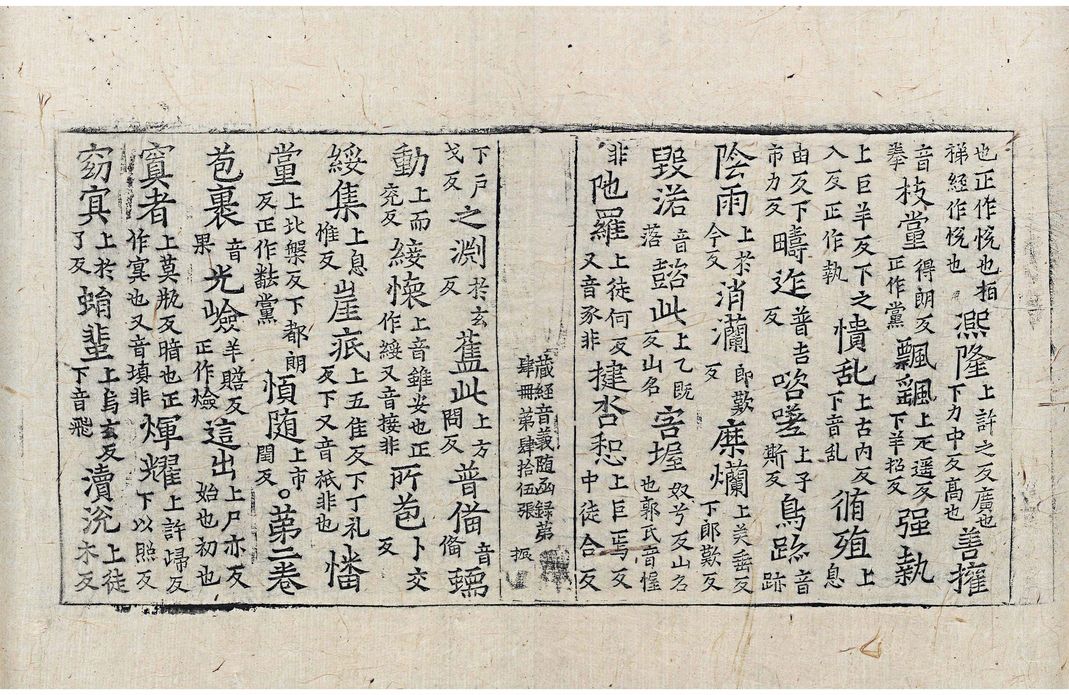 也正作悅也栢梯經作悅也凞隆上許之反廣也下力中反高也善擁
音拳枝黨得朗反正作黨飄颻上疋遥反下羊招反强執
上巨羊反下之入反正作執憒乱上古内反下音乱循殖上息
由反下市力反疇迮普吉反咨嗟上子斯反鳥跡音跡
陰雨上於今反消灡郎歎反糜爛上美垂反下郎歎反
毀渃音落此上乙既反山名奴兮反山名也郭氏音惺
非阤羅上徒何反又音豕非揵沓惒上巨焉反中徒合反
蔵経音義随函録第肆冊第肆拾伍張 振
下戶戈反之淵於玄反此上方問反普俻音俻蠕
動上而兖反緌懷上音雖安也正作綏又音接非所苞卜交反
綏集上息惟反崖底上五隹反下丁礼反下又音祇非也憣
黨上比盤反下都朗反正作黨愼随上市閏反○第二卷
苞裹音果光崄羊贍反正作燄這出上尸亦反始也初也
寘者上莫瓶反暗也正作冥也又音填非煇耀上許歸反下以照反
窈冥上於了反蜎蜚上烏玄反下音飛瀆沇上徒木反